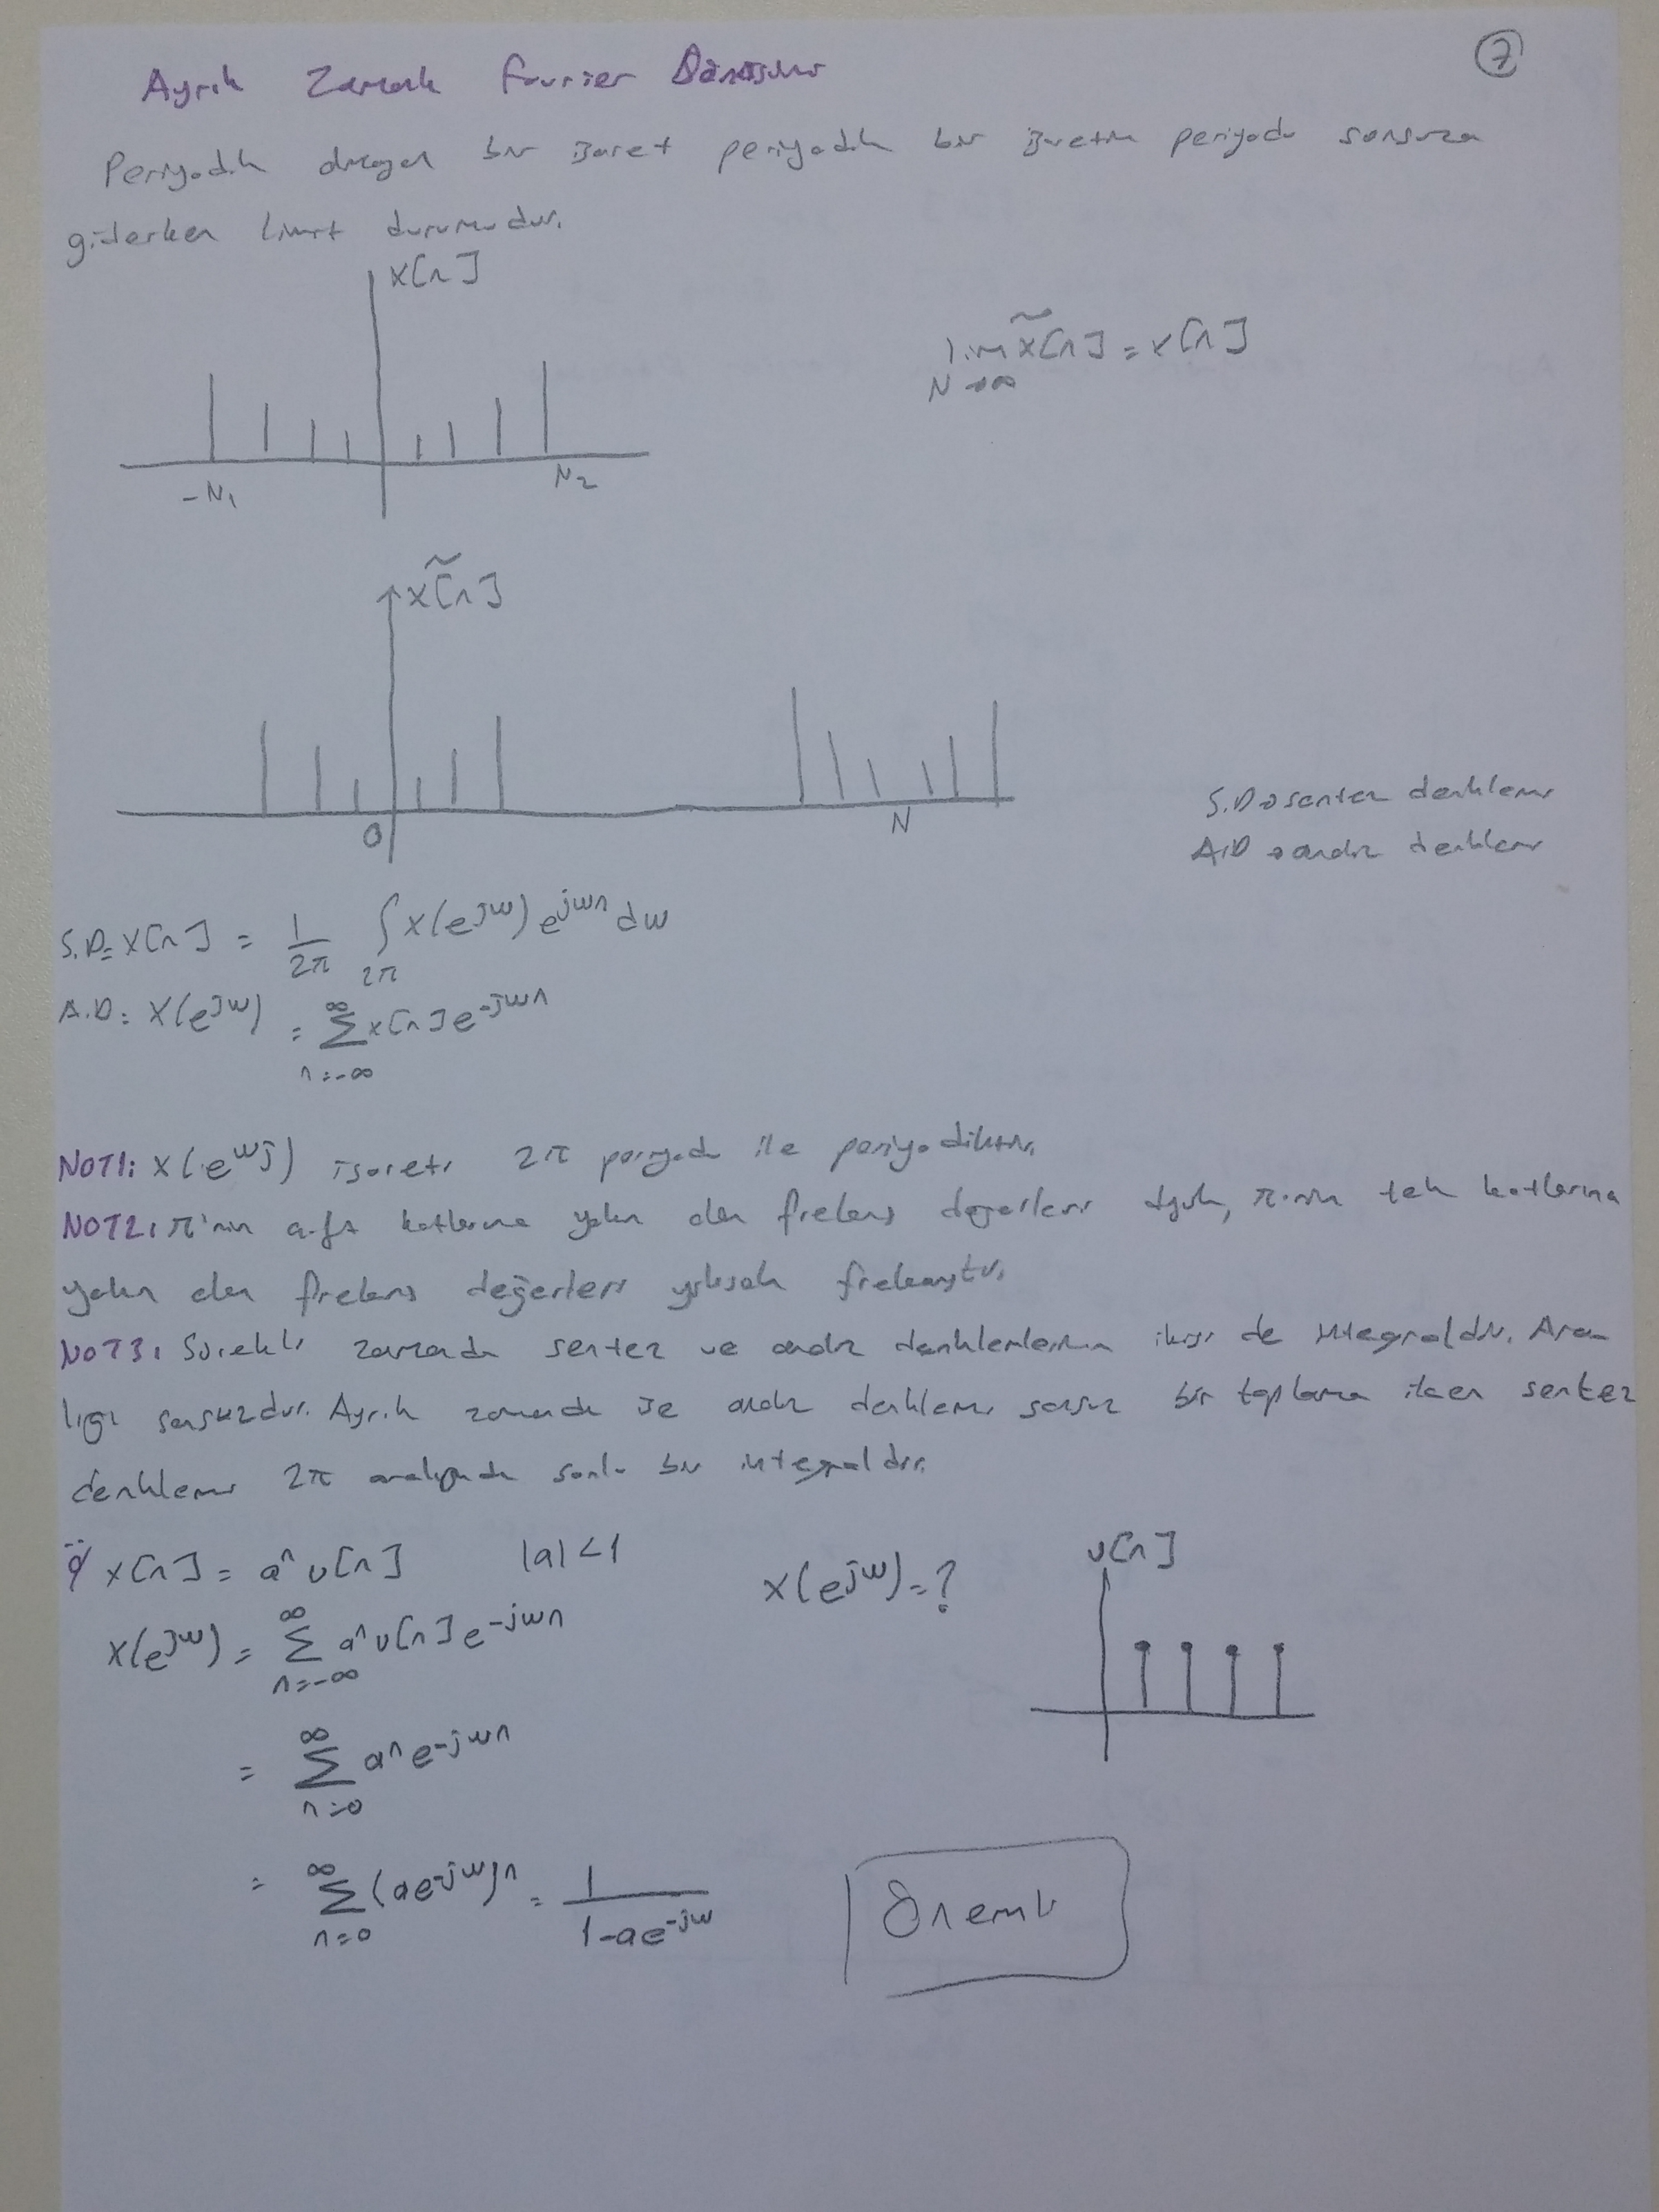 7
Ayrık Zamanlı Fourier Dönüşümü
Periyodik olmayan bir işaret periyodik bir işaretin periyodu sonsuza
giderken limit durumudur.
x[n]
lim x̃[n] = x[n]
N→∞
-N₁ N₂
x̃[n]
0 N
S.D → sentez denklemi
A.D → analiz denklemi
S.D: x[n] = 1/2π ∫2π X(e^jω) e^jωn dω
A.D: X(e^jω) = ∞Σn=-∞ x[n] e^-jωn
NOT1: X(e^ωj) işareti 2π periyodu ile periyodiktir.
NOT2: π'nin çift katlarına yakın olan frekans değerleri düşük, π'nin tek katlarına
yakın olan frekans değerleri yüksek frekanstır.
NOT3: Sürekli zamanda sentez ve analiz denklemlerinin ikisi de integraldir. Ara
lığı sonsuzdur. Ayrık zamanda ise analiz denklemi sonsuz bir toplama iken sentez
denklemi 2π aralığında sonlu bir integraldir.
Ö/ x[n] = aⁿ u[n] |a| < 1 X(e^jω) = ?
u[n]
X(e^jω) = ∞Σn=-∞ aⁿ u[n] e^-jωn
= ∞Σn=0 aⁿ e^-jωn
= ∞Σn=0 (ae^-jω)ⁿ = 1/(1-ae^-jω)
Önemli